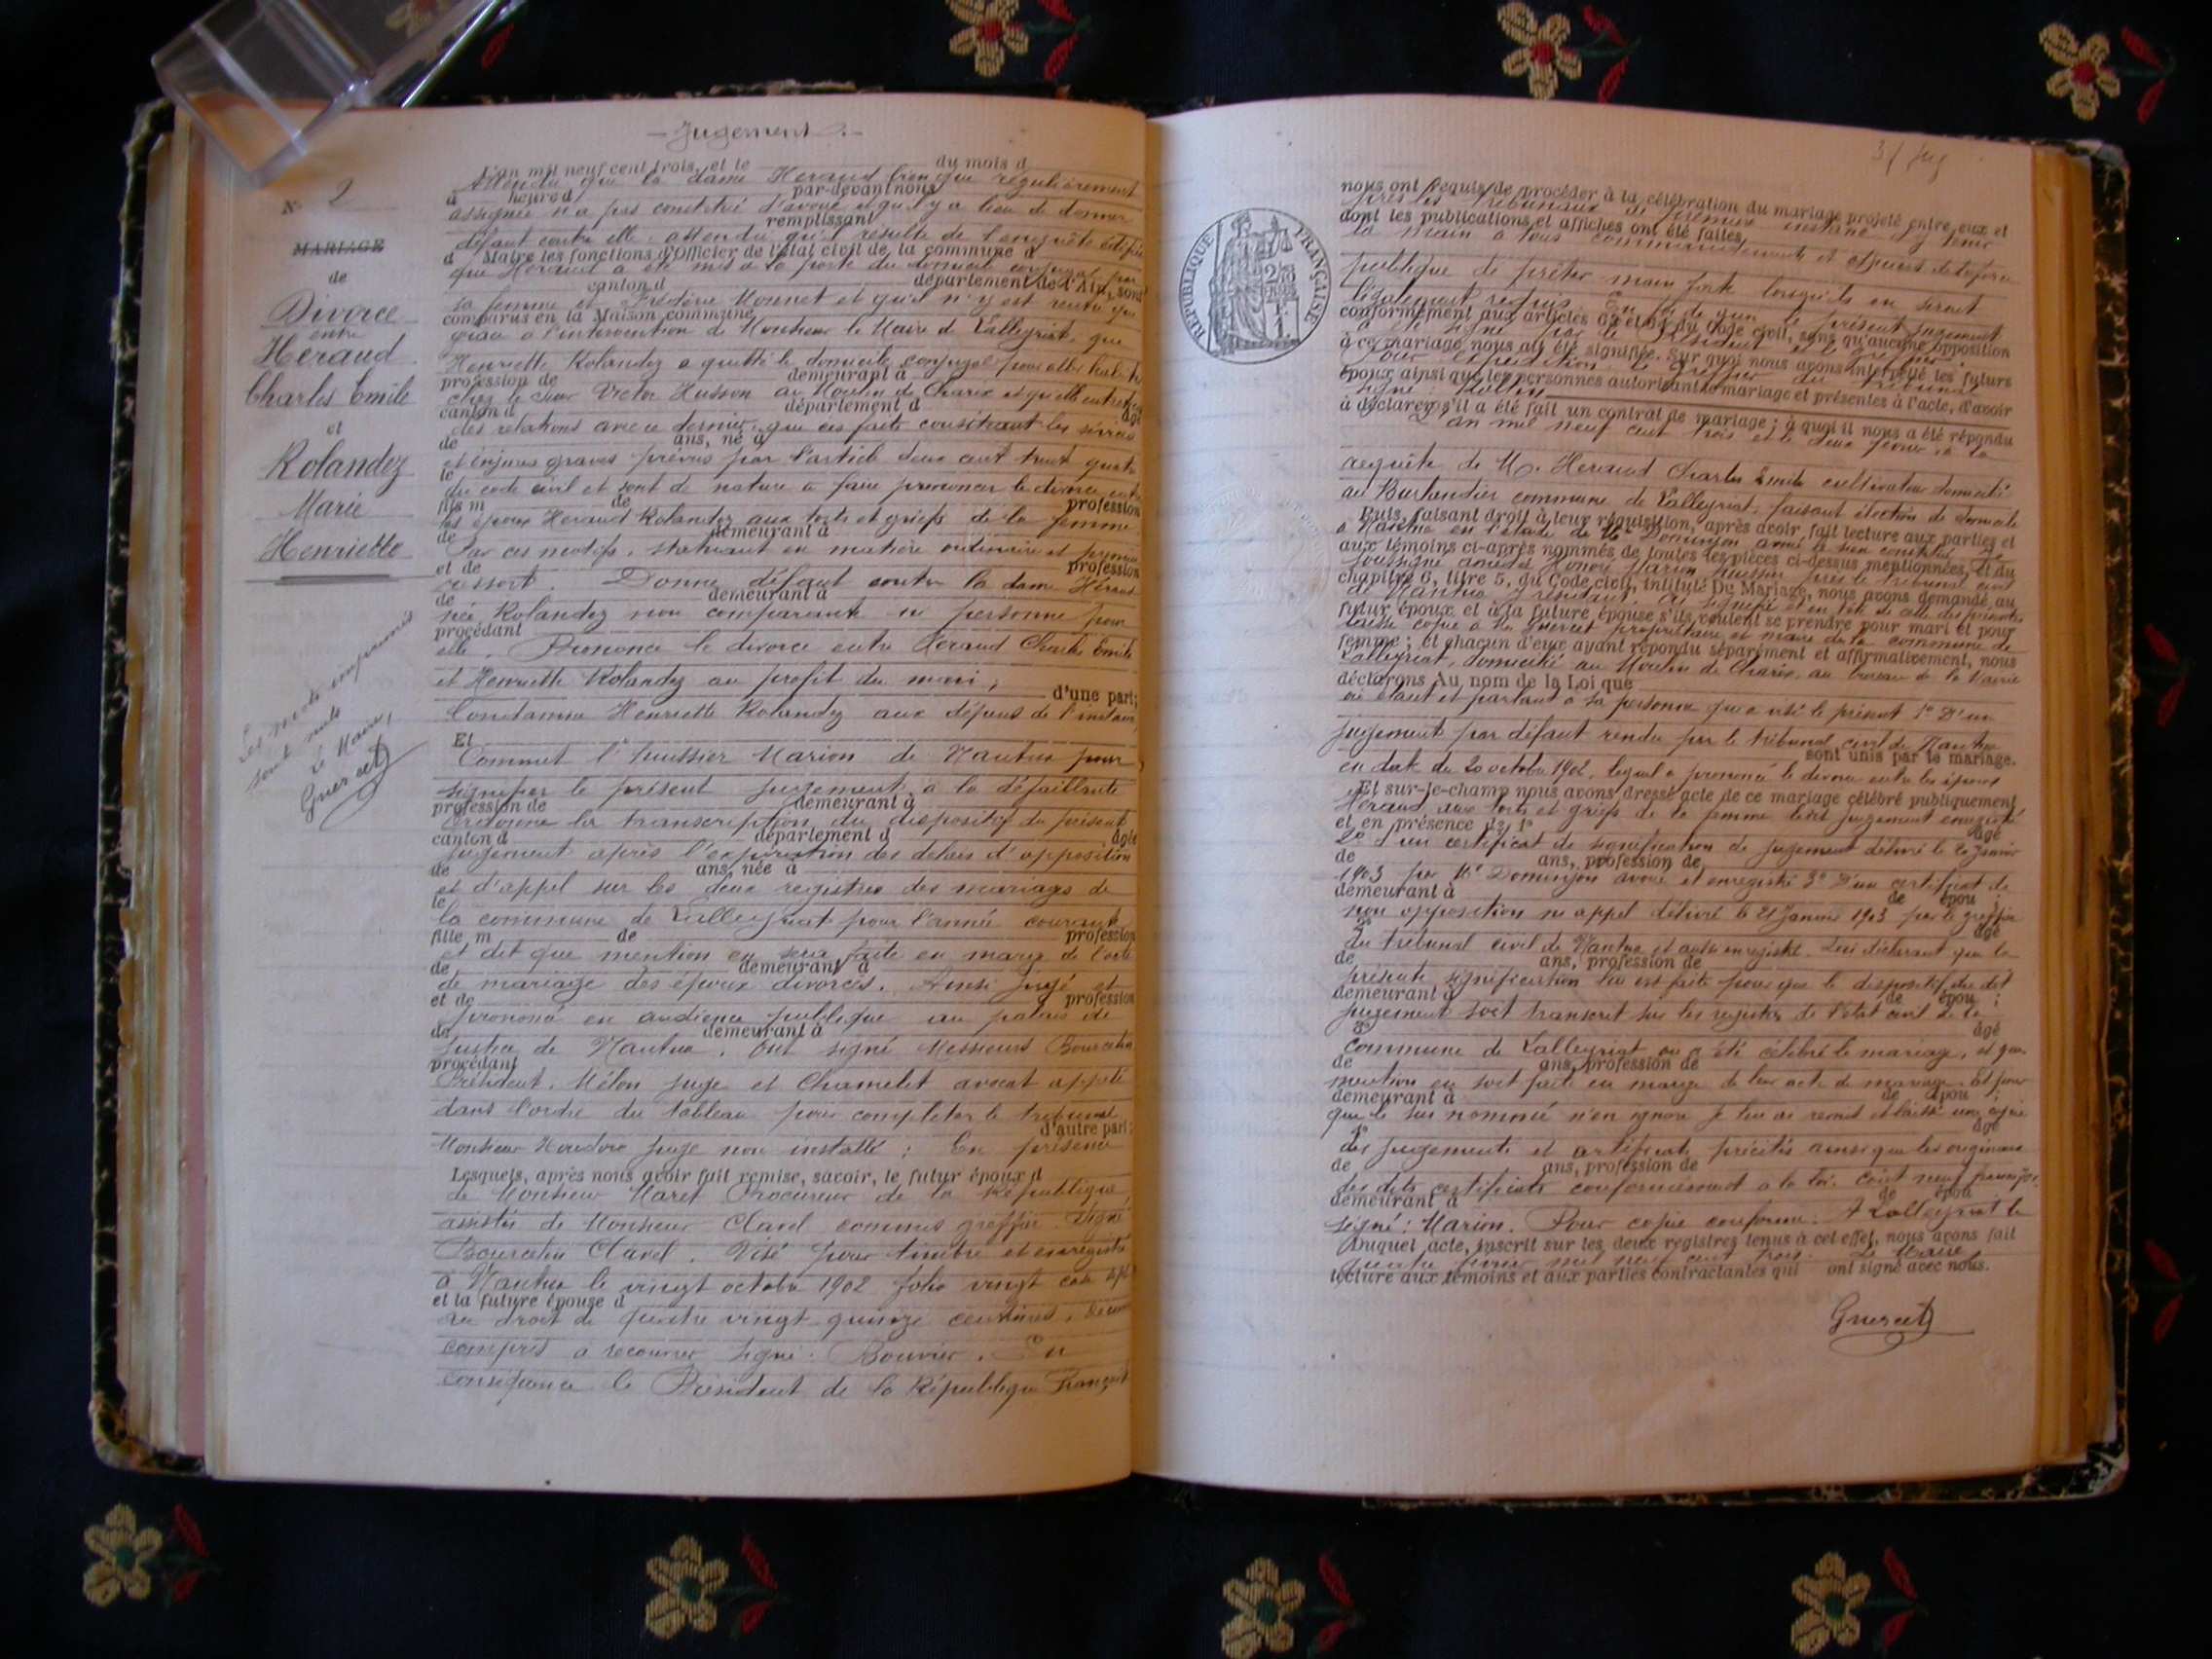 - Jugement -
L'an mil neuf cent trois, et le du mois d
Attendu que la dame Heraud bien que régulièrement
à heure d par-devant nous
assignée n'a pas constitué d'avoué et qu'il y a lieu de donner
remplissant
défaut contre elle. attendu qu'il résulte de l'enquête
d Maire les fonctions d'Officier de l'état civil de la commune d
que Heraud a été mis à la porte du domicile conjugal par
canton d département de l'Ain, sont
sa femme et Frédéric Monnet et qu'il n'y est rentré que
comparus en la Maison commune
grâce à l'intervention de Monsieur le Maire de Lalleyriat, que
Henriette Rolandez a quitté le domicile conjugal pour aller
profession de demeurant à
chez le sieur Victor Husson au Moulin de Charix et qu'elle entretient
canton d département d âgé
des relations avec ce dernier, que ces faits constituent les sévices
de ans, né à
et injures graves prévus par l'article deux cent trente quatre
le
du code civil et sont de nature à faire prononcer le divorce entre
fils m de profession
les époux Heraud Rolandez aux torts et griefs de la femme.
de demeurant à
Par ces motifs, statuant en matière ordinaire et premier
et de profession
ressort. Donne défaut contre la dame Héraud
de demeurant à
née Rolandez non comparante ni personne pour
procédant
elle. Prononce le divorce entre Heraud Charles Emile
et Henriette Rolandez au profit du mari;
d'une part;
Condamne Henriette Rolandez aux dépens de l'instance,
Et
Commet l'huissier Marion de Nantua pour
signifier le présent jugement à la défaillante
profession de demeurant à
Ordonne la transcription du dispositif du présent
canton d département d âgée
jugement après l'expiration des délais d'opposition
de ans, née à
et d'appel sur les deux registres des mariages de
le
la commune de Lalleyriat pour l'année courante
fille m de profession
et dit que mention en sera faite en marge de l'acte
de demeurant à
de mariage des époux divorcés. Ainsi jugé et
et de profession
prononcé en audience publique au palais de
de demeurant à
Justice de Nantua. Ont signé Messieurs Bourcelin
procédant
Président. Mélon juge et Chamelet avocat appelé
dans l'ordre du tableau pour compléter le tribunal
d'autre part:
Monsieur juge non installé; En présence
Lesquels, après nous avoir fait remise, savoir, le futur époux d
de Monsieur Maret Procureur de la République,
assistés de Monsieur Clavel commis greffier. Signé
Bourcelin Clavel. Visé pour timbre et enregistré
à Nantua le vingt octobre 1902 folio vingt case
et la future épouse d
au droit de quatre vingt quinze centimes,
compris à recouvrer signé: Bouvier. En
conséquence le Président de la République Français
N° 2
MARIAGE
de
Divorce
entre
Heraud
Charles Emile
et
Rolandez
Marie
Henriette
Les mots imprimés
sont nuls
Le Maire,
Guercet
REPUBLIQUE FRANÇAISE
nous ont requis de procéder à la célébration du mariage projeté entre eux et
près les tribunaux de première instance d'y tenir
dont les publications et affiches ont été faites
la main à tous commandants et officiers de la force
publique de prêter main forte lorsqu'ils en seront
légalement requis. En foi de quoi le présent jugement
conformément aux articles et du Code civil, sans qu'aucune opposition
a été signé par le Président et le greffier
à ce mariage nous ait été signifiée. Sur quoi nous avons interpellé les futurs
Pour expédition le greffier du tribunal
époux ainsi que les personnes autorisant le mariage et présentes à l'acte, d'avoir
signé
à déclarer s'il a été fait un contrat de mariage; à quoi il nous a été répondu
L'an mil neuf cent trois et le deux février à la
requête de M. Heraud Charles Emile cultivateur domicilié
au Burlandier commune de Lalleyriat faisant élection de domicile
Puis, faisant droit à leur réquisition, après avoir fait lecture aux parties et
à Nantua en l'étude de Me Dominjon avoué
aux témoins ci-après nommés de toutes les pièces ci-dessus mentionnées, et du
soussigné Honoré Marion huissier près le tribunal civil
chapitre 6, titre 5, du Code civil, intitulé Du Mariage, nous avons demandé au
de Nantua y résidant. Ai signifié et en tête de celle des présentes
futur époux et à la future épouse s'ils veulent se prendre pour mari et pour
laissé copie à Mr Guercet propriétaire et maire de la commune de
femme; et chacun d'eux ayant répondu séparément et affirmativement, nous
Lalleyriat, domicilié au Moulin de Charix, au bureau de la Mairie
déclarons Au nom de la Loi que
où étant et parlant à sa personne qui a visé le présent 1° D'un
jugement par défaut rendu par le tribunal civil de Nantua
sont unis par le mariage.
en date du 20 octobre 1902, lequel a prononcé le divorce entre les époux
Et sur-le-champ nous avons dressé acte de ce mariage célébré publiquement
Heraud aux torts et griefs de la femme jugement enregistré
et en présence de: 1° âgé
2° D'un certificat de signification de jugement délivré le 20 janvier
de ans, profession de
1903 par Me Dominjon avoué et enregistré 3° D'un certificat de
demeurant à de épou ;
non opposition ni appel délivré le 21 Janvier 1903 par le greffier
2° âgé
du tribunal civil de Nantua et aussi enregistré. Lui déclarant que la
de ans, profession de
présente signification lui est faite pour que le dispositif du dit
demeurant à de épou ;
jugement soit transcrit sur les registres de l'état civil de la
3° âgé
commune de Lalleyriat où a été célébré le mariage, et que
de ans, profession de
mention en soit faite en marge de leur acte de mariage. Et pour
demeurant à de épou ;
que le sus nommé n'en ignore je lui ai remis et laissé une copie
4° âgé
des jugement et certificats précités ainsi que les originaux
de ans, profession de
des dits certificats conformément à la loi. Coût neuf francs
demeurant à de épou
signé: Marion. Pour copie conforme. A Lalleyriat le
Duquel acte, inscrit sur les deux registres tenus à cet effet, nous avons fait
mil neuf cent trois. Le Maire
lecture aux témoins et aux parties contractantes qui ont signé avec nous.
Guercet